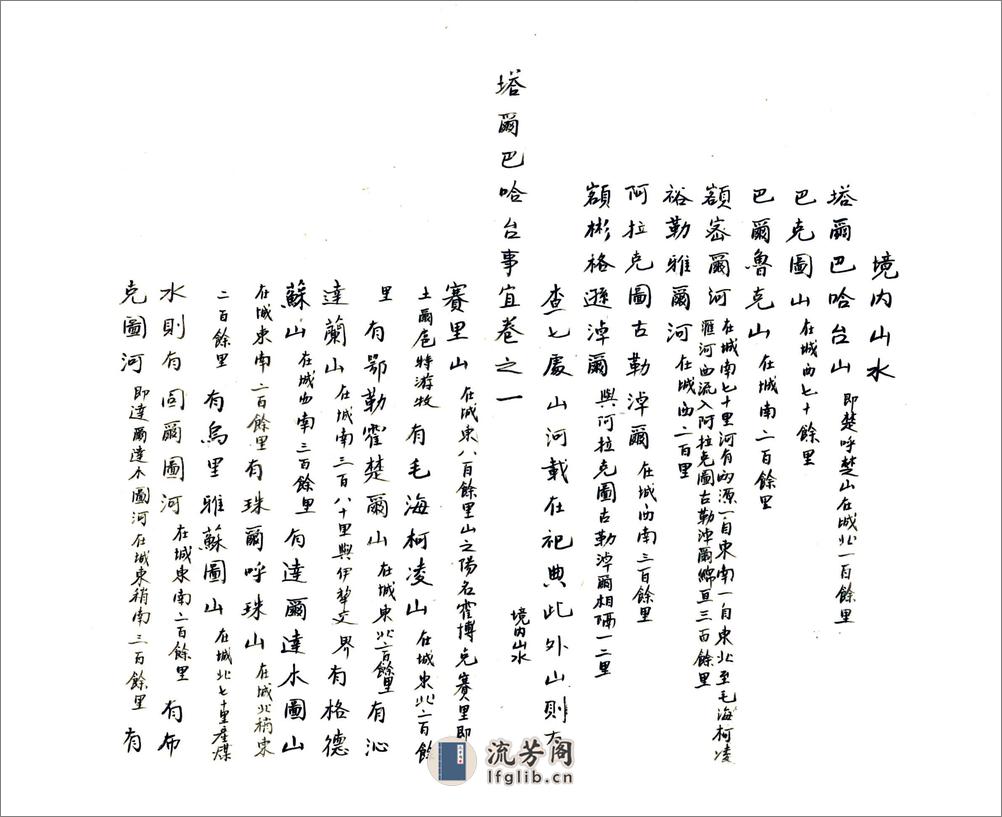 境内山水
塔爾巴哈台山 即楚呼楚山在城北一百餘里
巴克圖山 在城西七十餘里
巴爾魯克山 在城南二百餘里
額密爾河 在城南七十里河有兩源一自東南一自東北至毛海柯凌
滙河西流入阿拉克圖古勒淖爾綿亘三百餘里
裕勒雅爾河 在城西二百里
阿拉克圖古勒淖爾 在城西南三百餘里
額彬格遜淖爾 與阿拉克圖古勒淖爾相隔一二里
查七處山河載在祀典此外山則有
塔爾巴哈台事宜卷之一 境内山水
賽里山 在城東八百餘里山之陽名霍博克賽里即
土爾扈特游牧 有毛海柯凌山 在城東北二百餘
里 有鄂勒霍楚爾山 在城東北二百餘里 有沁
達蘭山 在城南三百八十里與伊犂交界 有格德
蘇山 在城西南三百餘里 有達爾達木圖山
在城東南二百餘里 有珠爾呼珠山 在城北稍東
二百餘里 有烏里雅蘇圖山 在城北七十里產煤
水則有固爾圖河 在城東南二百餘里 有布
克圖河 即達爾達木圖河在城東稍南三百餘里 有
流芳阁
lfglib.cn